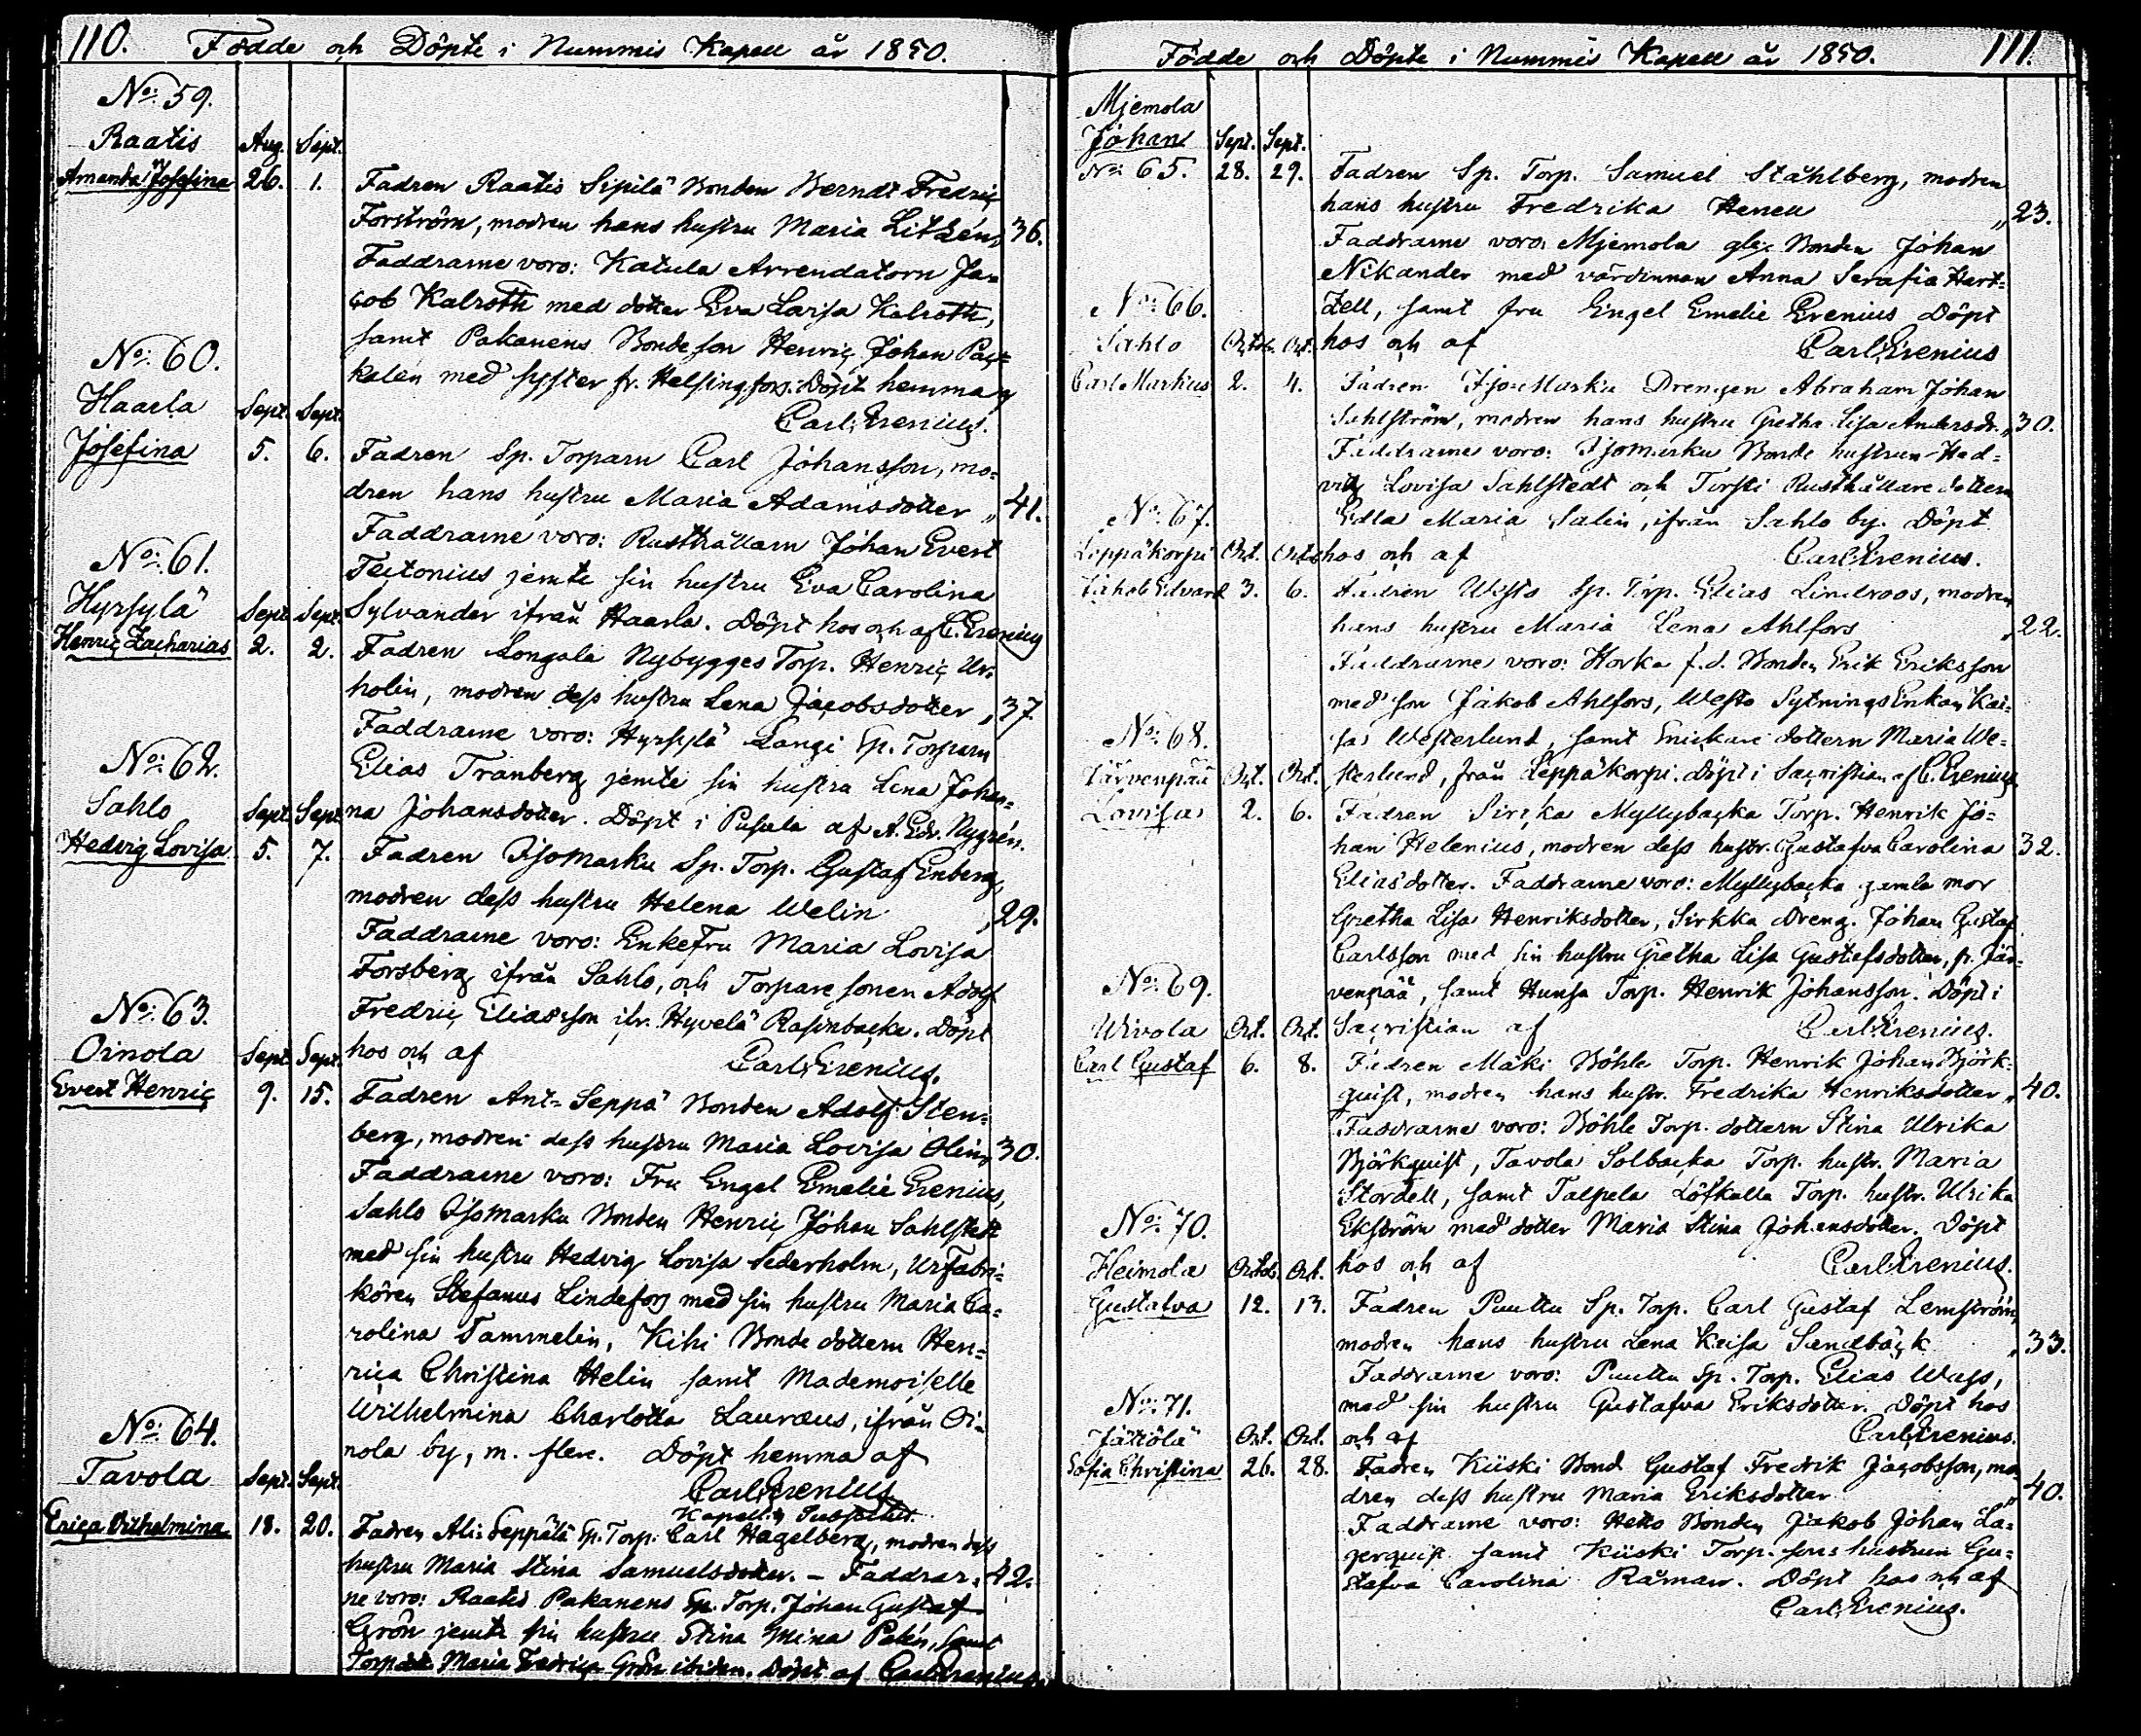 110. Födde och Döpte i Nummis Kapell år 1850.
No: 59.
Raatis Aug. Sept.
Amanda Josefina 26. 1. Fadren Raatis Sipilä Bonden Berndt Fredric
Forström, modren hans hustru Maria Litzén, 36.
Faddrarne voro: Katula Arrendatorn Ja=
cob Kalroth med dotter Eva Lovisa Kalroth,
samt Pakanens Bondeson Henric Johan
kalén med syster fr. Helsingfors. Döpt hemma af
Carl Erenius.
No: 60.
Haarla Sept. Sept.
Josefina 5. 6. Fadren Sp. Torparn Carl Johansson, mo=
dren hans hustru Maria Adamsdotter „ 41.
Faddrarne voro: Rusthållarn Johan Evert
Tectonius jemte sin hustru Eva Carolina
Sylvander ifrån Haarla. Döpt hos och af C. Erenius
No: 61.
Hyrsylä Sept. Sept.
Henric Zacharias 2. 2. Fadren Longala Nybygges Torp. Henric Ur=
holin, modren dess hustru Lena Jacobsdotter „ 37.
Faddrarne voro: Hyrsylä Langi Sp. Torparn
Elias Tranberg jemte sin hustru Lena Johan=
na Johansdotter. Döpt i Pusula af A. Edv. Nygrén.
No: 62.
Sahlo Sept. Sept.
Hedvig Lovisa 5. 7. Fadren Isomarku Sp. Torp. Gustaf Enberg,
modren dess hustru Helena Welin „ 29.
Faddrarne voro: Enkefru Maria Lovisa
Forsberg ifrån Sahlo, och Torpare sonen Adolf
Fredric Eliasson ifr. Hyvelä Rasinbacka. Döpt
hos och af Carl Erenius.
No: 63.
Oinola Sept. Sept.
Evert Henric 9. 15. Fadren Ant= Seppä Bonden Adolf Sten=
berg, modren dess hustru Maria Lovisa Olin, 30.
Faddrarne voro: Fru Engel Emelie Erenius,
Sahlo Isomarku Bonden Henric Johan Sahlstedt
med sin hustru Hedvig Lovisa Sederholm, Urfabri=
kören Stefanus Lindefors med sin hustru Maria Ca=
rolina Tammelin, Kihi Bonde dottern Hen=
rica Christina Helin samt Mademoiselle
Wilhelmina Charlotta Lauræus, ifrån Oi=
nola by, m. flere. Döpt hemma af
Carl Erenius
No: 64.
Tavola Sept. Sept.
Erica Vilhelmina 18. 20. Fadren Ali: Seppälä Sp. Torp. Carl Hagelberg, modren dess
hustru Maria Stina Samuelsdotter. – Faddrar= „ 42.
ne voro: Raatis Pakanens Sp. Torp. Johan Gustaf
Grön jemte sin hustru Stina Mina Palén, samt
Maria Fredrica Grön ibidem. Döpt af Carl Erenius.
Födde och Döpte i Nummis Kapell år 1850. 111.
Mjemola
Johan Sept. Sept.
No: 65. 28. 29. Fadren Sp. Torp. Samuel Ståhlberg, modren
hans hustru Fredrika Henell „ 23.
Faddrarne voro: Mjemola Bonden Johan
Nikander med värdinnan Anna Serafia Hart=
zell, samt fru Engel Emelie Erenius Döpt
hos och af Carl Erenius
No: 66.
Sahlo Octob. Oct.
Carl Markus 2. 4. Fadren Isomarku Drengen Abraham Johan
Sahlström, modren hans hustru Gretha Lisa Andersdr. „ 30.
Faddrarne voro: Isomarku Bonde hustrun Hed=
vig Lovisa Sahlstedt och Torsti Rusthållare dottern
Edla Maria Salin, ifrån Sahlo by. Döpt
hos och af Carl Erenius.
No: 67.
Leppäkorpi Oct. Oct.
Jakob Edvard 3. 6. Fadren Wisto Sp. Torp. Elias Lindroos, modren
hans hustru Maria Lena Ahlfors „ 22.
Faddrarne voro: Horka f.d. Bonden Erik Eriksson
med son Jakob Ahlfors, Westo Sytnings Enkan Kai=
sa Westerlund, samt Snickare dottern Maria We=
sterlund, från Leppäkorpi. Döpt i Sacristian af C. Erenius
No: 68.
Järvenpää Oct. Oct.
Lovisa 2. 6. Fadren Sirkka Myllybacka Torp. Henrik Jo=
han Helenius, modren dess hustr. Gustafva Carolina 32.
Eliasdotter. Faddrarne voro: Myllybacka gamla mor
Gretha Lisa Henriksdotter, Sirkka Dreng. Johan Gustaf
Carlsson med sin hustru Gretha Lisa Gustafsdotter, fr. Jär=
venpää, samt Hunsa Torp. Henrik Johansson. Döpt i
Sacristian af Carl Erenius.
No: 69.
Wivola Oct. Oct.
Carl Gustaf 6. 8. Fadren Mäki Böhle Torp. Henrik Johan Björk=
quist, modren hans hustr. Fredrika Henriksdotter „ 40.
Faddrarne voro: Böhle Torp. dottern Stina Ulrika
Björkquist, Tavola Solbacka Torp. hustr. Maria
Stordell, samt Talpela Löfkulla Torp. hustr. Ulrika
Ekström med dotter Maria Stina Johansdotter. Döpt
hos och af Carl Erenius.
No: 70.
Heimola Octob. Oct.
Gustafva 12. 13. Fadren Puuttu Sp. Torp. Carl Gustaf Lemström,
modren hans hustru Lena Kaisa Sandbäck „ 33.
Faddrarne voro: Puuttu Sp. Torp. Elias Wass,
med sin hustru Gustafva Eriksdotter. Döpt hos
och af Carl Erenius.
No: 71.
Jättölä Oct. Oct.
Sofia Christina 26. 28. Fadren Kiiski Bond Gustaf Fredrik Jacobsson, mo=
dren dess hustru Maria Eriksdotter „ 40.
Faddrarne voro: Heiko Bonden Jakob Johan La=
gerquist samt Kiiski Torp. sons hustrun Gu=
stafva Carolina Råman. Döpt hos och af
Carl Erenius.